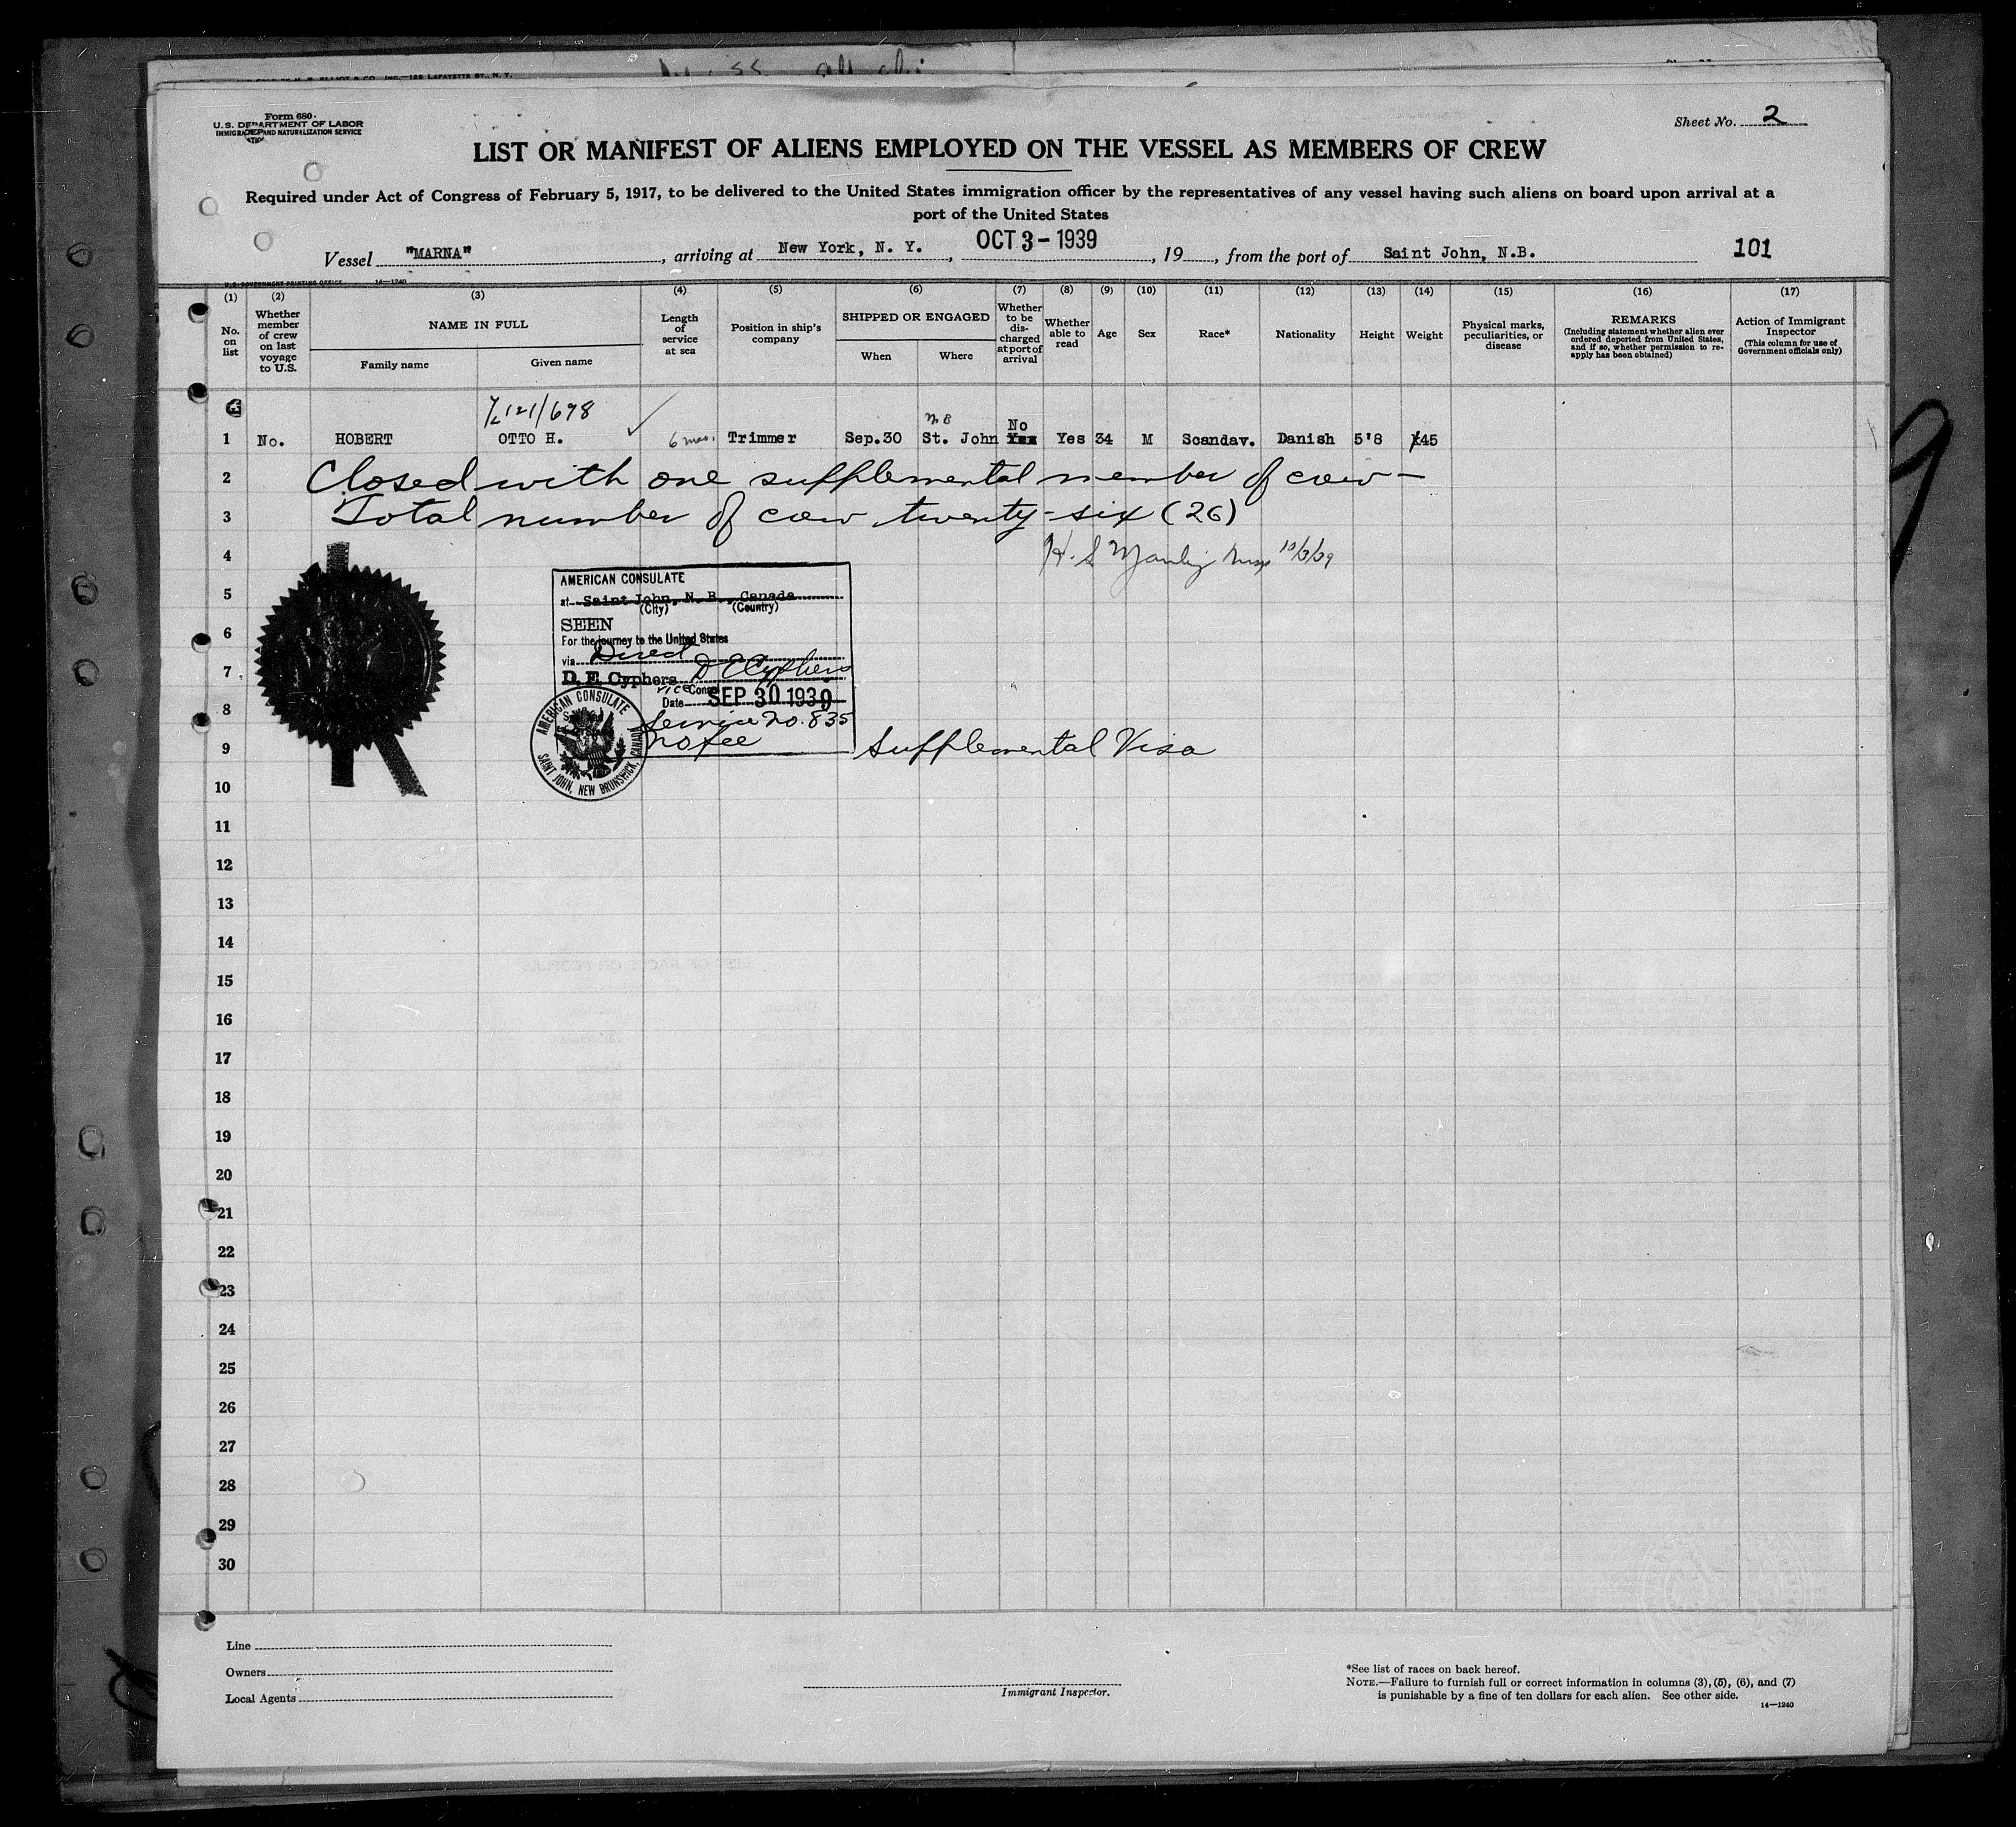 Form 680
U.S. DEPARTMENT OF LABOR
IMMIGRATION AND NATURALIZATION SERVICE
Sheet No. 2
LIST OR MANIFEST OF ALIENS EMPLOYED ON THE VESSEL AS MEMBERS OF CREW
Required under Act of Congress of February 5, 1917, to be delivered to the United States immigration officer by the representatives of any vessel having such aliens on board upon arrival at a
port of the United States
Vessel "MARNA", arriving at New York, N. Y., OCT 3 - 1939, 19, from the port of Saint John, N.B. 101
U. S. GOVERNMENT PRINTING OFFICE 14—1240
(1) (2) (3) (4) (5) (6) (7) (8) (9) (10) (11) (12) (13) (14) (15) (16) (17)
No. on list
Whether member of crew on last voyage to U.S.
NAME IN FULL
Family name
Given name
Length of service at sea
Position in ship's company
SHIPPED OR ENGAGED
When
Where
Whether to be discharged at port of arrival
Whether able to read
Age
Sex
Race*
Nationality
Height
Weight
Physical marks, peculiarities, or disease
REMARKS
(Including statement whether alien ever ordered deported from United States, and if so, whether permission to re-apply has been obtained)
Action of Immigrant Inspector
(This column for use of Government officials only)
121/698
N B
No
1 No. HOBERT OTTO H. 6 mos. Trimmer Sep.30 St. John Yes Yes 34 M Scandav. Danish 5'8 145
2 Closed with one supplemental member of crew —
3 Total number of crew twenty-six (26)
4 H. S. 10/3/39
AMERICAN CONSULATE
5 at Saint John, N. B., Canada
(City) (Country)
SEEN
6 For the journey to the United States
via Direct
7 D. E. Cyphers D E Cyphers
vice Consul
Date SEP 30 1939
8 Service No. 835
9 no fee Supplemental Visa
AMERICAN CONSULATE
SAINT JOHN, NEW BRUNSWICK, CANADA
10
11
12
13
14
15
16
17
18
19
20
21
22
23
24
25
26
27
28
29
30
Line
Owners
Local Agents
Immigrant Inspector.
*See list of races on back hereof.
NOTE.—Failure to furnish full or correct information in columns (3), (5), (6), and (7)
is punishable by a fine of ten dollars for each alien. See other side.
14—1240